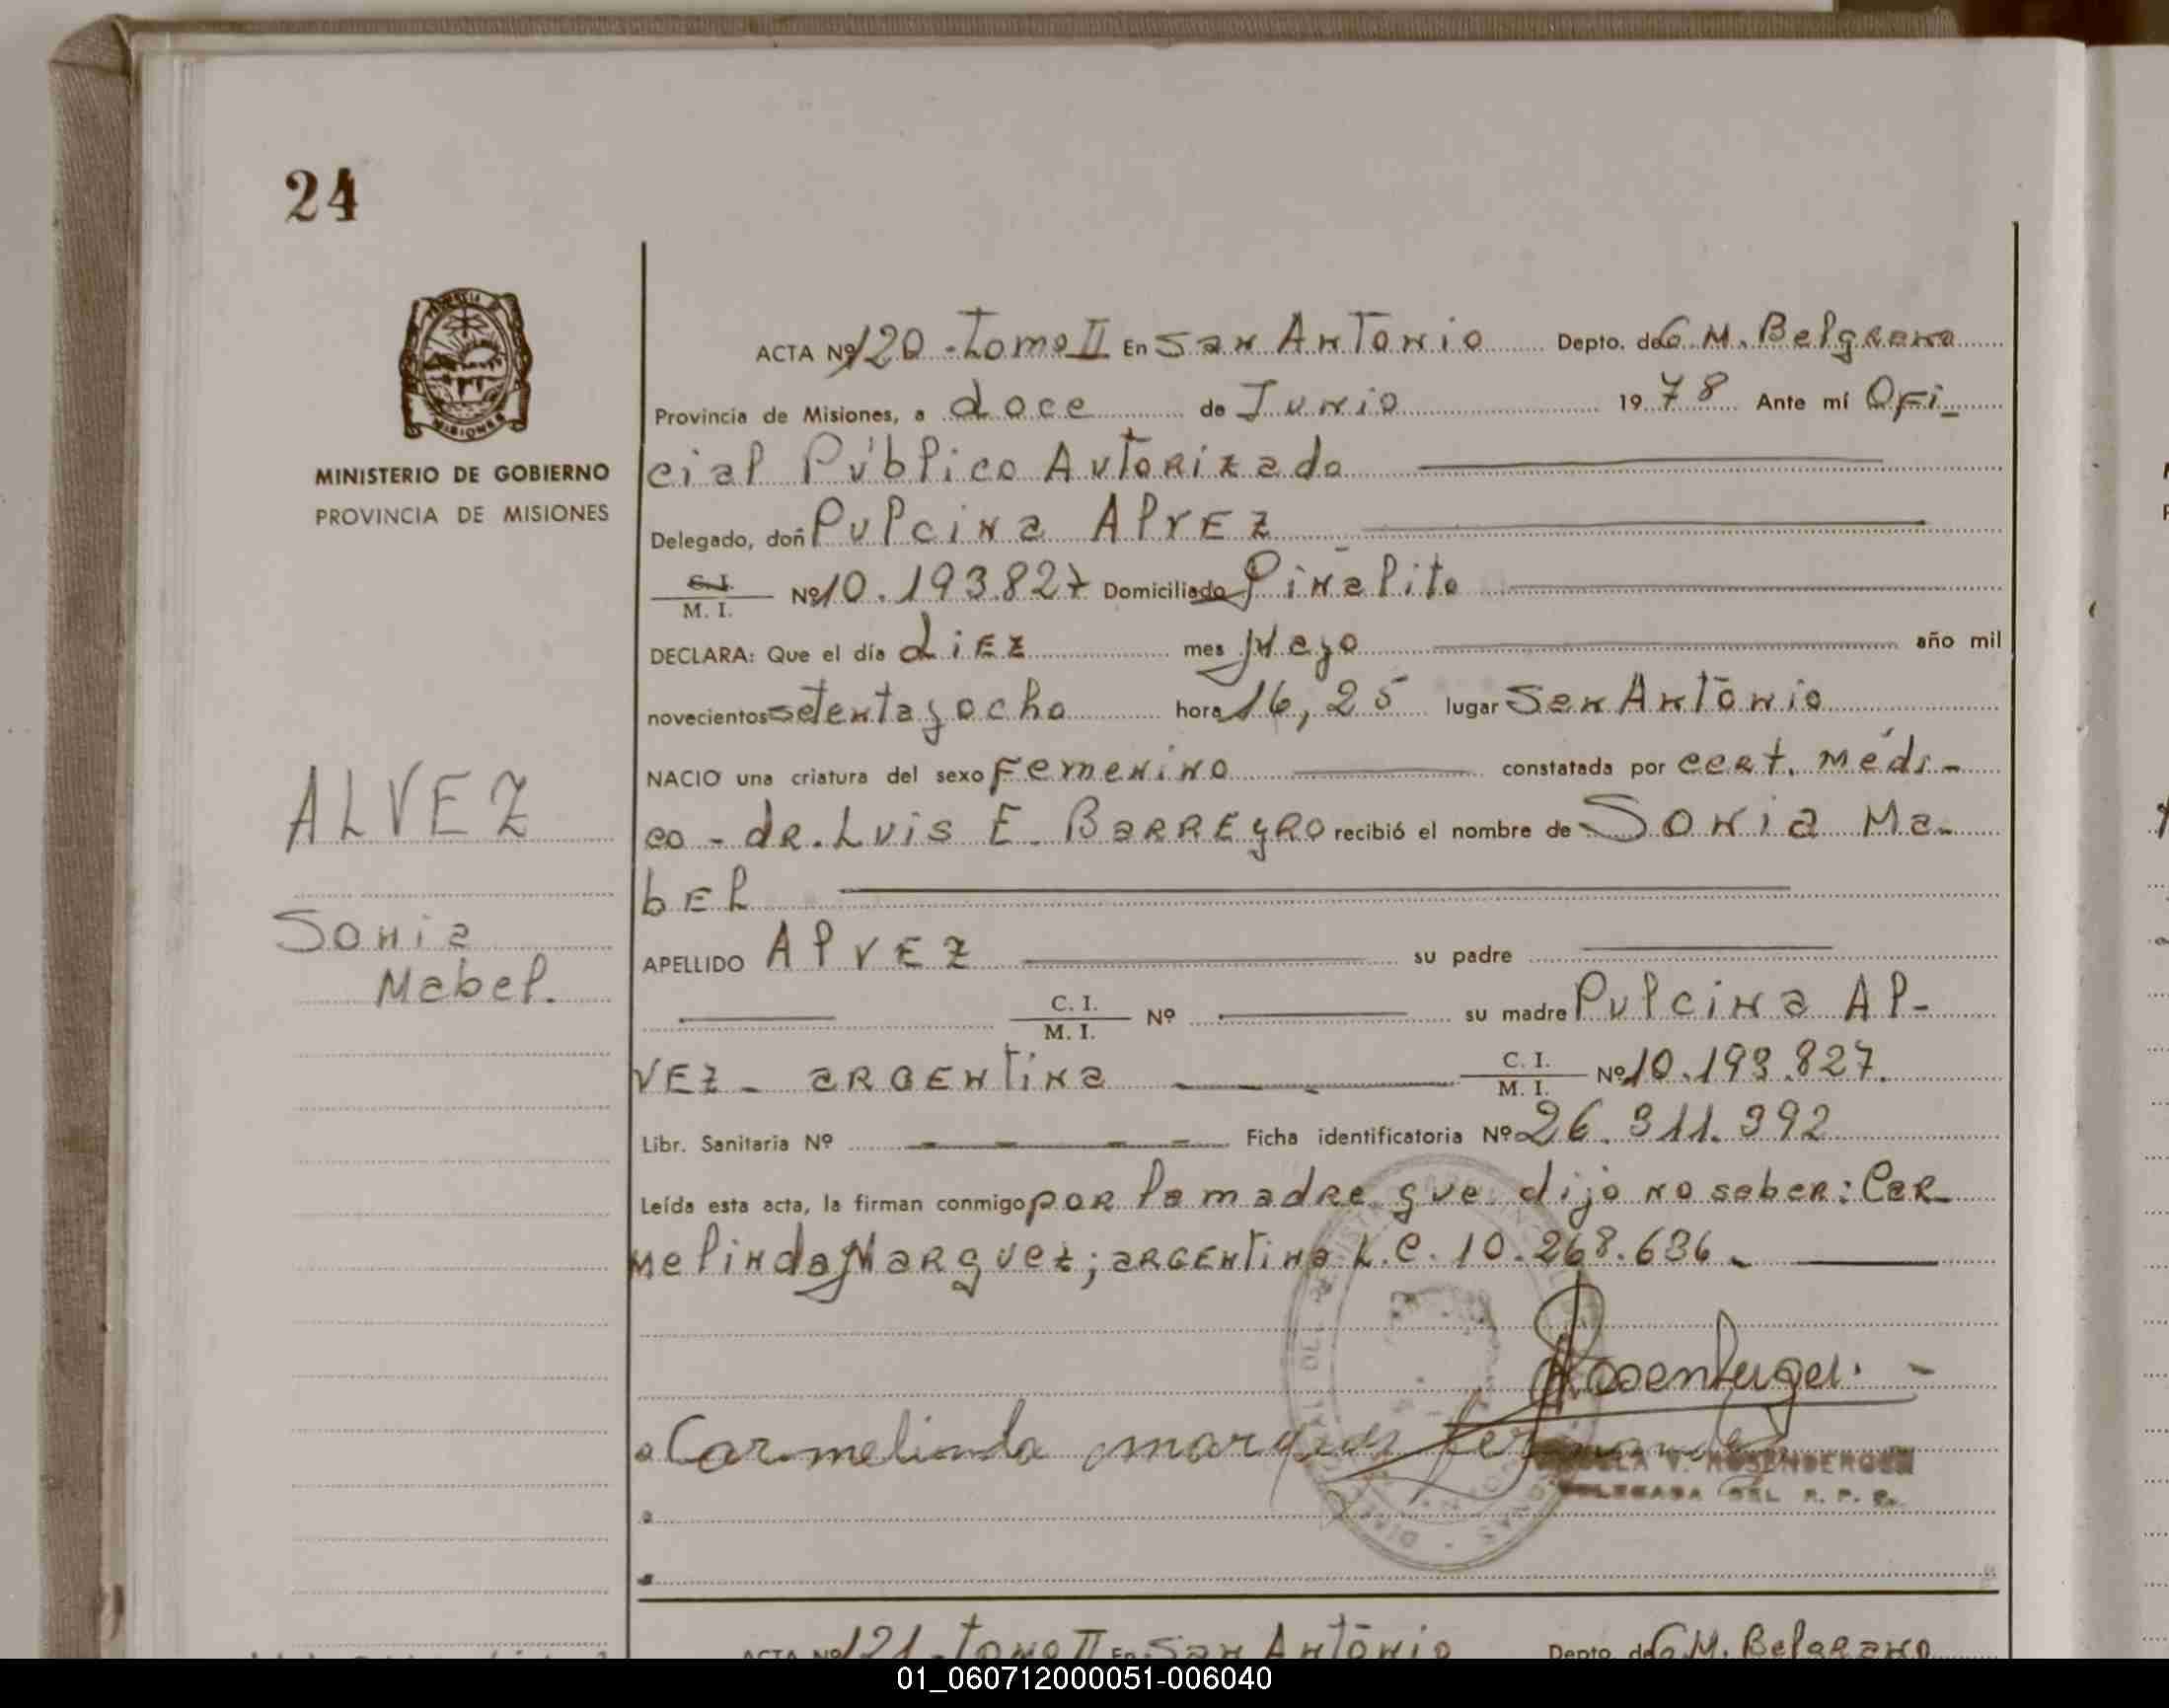 24
MINISTERIO DE GOBIERNO
PROVINCIA DE MISIONES
ALVEZ
Sonia
Mabel.
ACTA Nº 120 - Tomo II En San Antonio Depto. de G M. Belgrano
Provincia de Misiones, a doce de Junio 1978 Ante mí Ofi-
cial Público Autorizado
Delegado, doñ Pulcina Alvez
C. I.
M. I. Nº 10.193.827 Domiciliado Piñalito
DECLARA: Que el día diez mes Mayo año mil
novecientos setenta y ocho hora 16,25 lugar San Antonio
NACIO una criatura del sexo femenino constatada por cert. médi-
co - dr. Luis E. Barreyro recibió el nombre de Sonia Ma-
bel
APELLIDO Alvez su padre
C. I.
M. I. Nº su madre Pulcina Al-
vez - argentina C. I.
M. I. Nº 10.193.827.
Libr. Sanitaria Nº - - - - Ficha identificatoria Nº 26.311.392
Leída esta acta, la firman conmigo por la madre que dijo no saber: Car-
melinda Marquez; argentina L.C. 10.268.636.-
Rosenberger.-
Carmelinda marques
V. ROSENBERGER
DELEGADA DEL R. P. P.
ACTA Nº 121 - Tomo II En San Antonio Depto. de G M. Belgrano
01_060712000051-006040